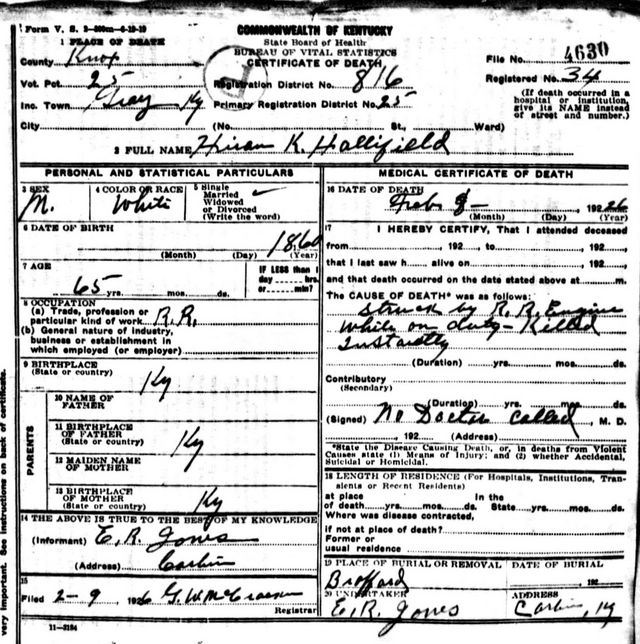 Form V. S. 2-400m-6-19-19
COMMONWEALTH OF KENTUCKY
State Board of Health
BUREAU OF VITAL STATISTICS
CERTIFICATE OF DEATH
File No. 4630
Registered No. 34
(If death occurred in a hospital or institution, give its NAME instead of street and number.)
1 PLACE OF DEATH
County Knox
Vot. Pct. 25 Registration District No. 816
Inc. Town Gray Ky Primary Registration District No. 25
City (No. St., Ward)
2 FULL NAME Hiram K. Hollifield
PERSONAL AND STATISTICAL PARTICULARS
3 SEX M.
4 COLOR OR RACE White
5 Single
Married
Widowed
or Divorced
(Write the word)
6 DATE OF BIRTH
1860
(Month) (Day) (Year)
7 AGE
65 yrs. mos. ds.
IF LESS than 1
day hrs.
or min?
8 OCCUPATION
(a) Trade, profession or
particular kind of work R.R.
(b) General nature of industry,
business or establishment in
which employed (or employer)
9 BIRTHPLACE
(State or country) Ky
PARENTS
10 NAME OF
FATHER
11 BIRTHPLACE
OF FATHER
(State or country) Ky
12 MAIDEN NAME
OF MOTHER
13 BIRTHPLACE
OF MOTHER
(State or country) Ky
14 THE ABOVE IS TRUE TO THE BEST OF MY KNOWLEDGE
(Informant) E. R. Jones
(Address) Corbin
15
Filed 2-9 1926 G. W. McCracken
Registrar
11-3184
MEDICAL CERTIFICATE OF DEATH
16 DATE OF DEATH
Feb , 1926
(Month) (Day) (Year)
17 I HEREBY CERTIFY, That I attended deceased
from , 192 to , 192
that I last saw h alive on , 192
and that death occurred on the date stated above at m.
The CAUSE OF DEATH* was as follows:
Struck by R. R. Engine
While on duty - Killed
Instantly
(Duration) yrs. mos. ds.
Contributory
(Secondary)
(Duration) yrs. mos. ds.
(Signed) No Doctor called, M. D.
, 192 (Address)
*State the Disease Causing Death, or, in deaths from Violent
Causes state (1) Means of Injury; and (2) whether Accidental,
Suicidal or Homicidal.
18 LENGTH OF RESIDENCE (For Hospitals, Institutions, Transients or Recent Residents)
at place In the
of death yrs. mos. ds. State yrs. mos. ds.
Where was disease contracted,
if not at place of death?
Former or
usual residence
19 PLACE OF BURIAL OR REMOVAL DATE OF BURIAL
, 192
20 UNDERTAKER ADDRESS
E. R. Jones Corbin, Ky
very important. See instructions on back of certificate.